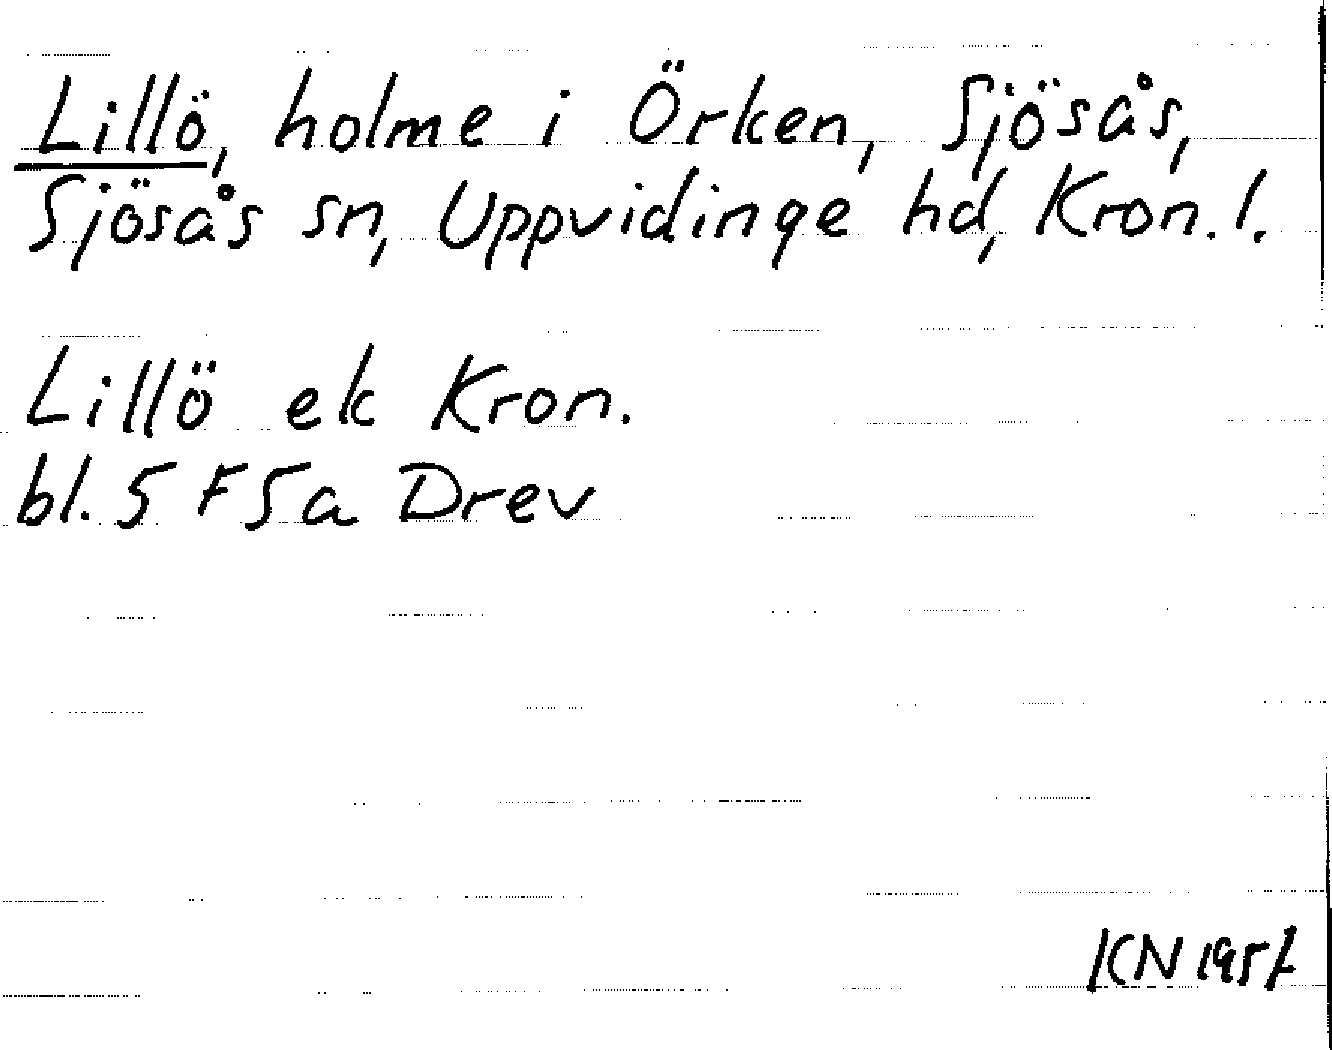 Lillö, holme i Örken, Sjösås,
Sjösås sn, Uppvidinge hd, Kron. l.
Lillö ek Kron.
bl. 5 F5a Drev
KN 1957